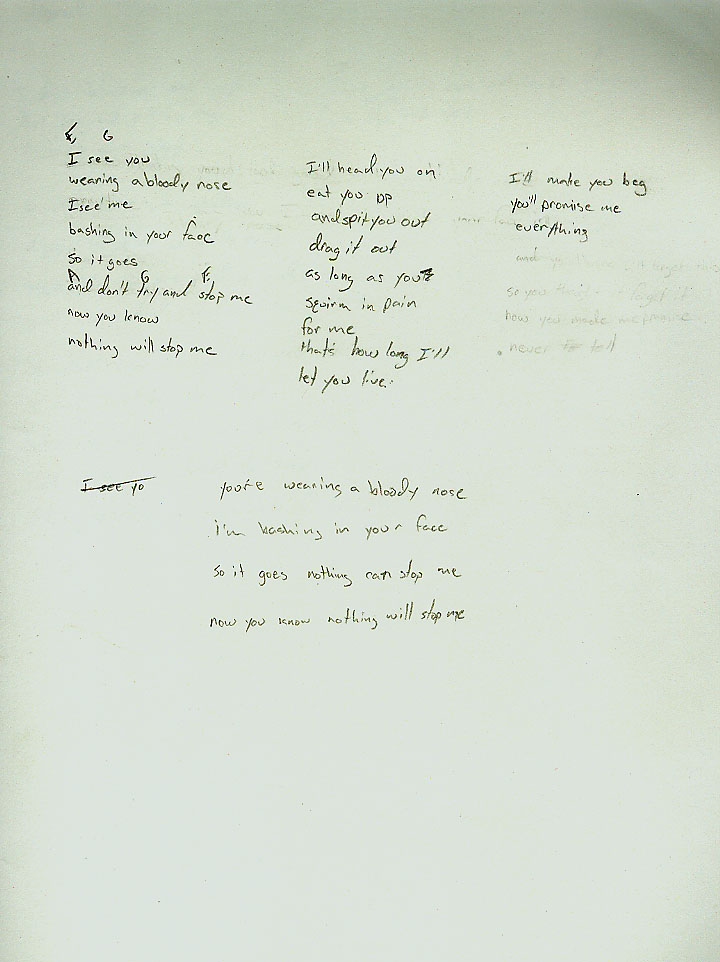 G
I see you
wearing a bloody nose
I see me
bashing in your face
So it goes
A G F
and don't try and stop me
now you know
nothing will stop me
I'll head you on
eat you up
and spit you out
drag it out
as long as you
squirm in pain
for me
that's how long I'll
let you live.
I'll make you beg
you'll promise me
everything
so you forget it
how you made me promise
never to tell
I see yo
you're wearing a bloody nose
i'm bashing in your face
so it goes nothing can stop me
now you know nothing will stop me